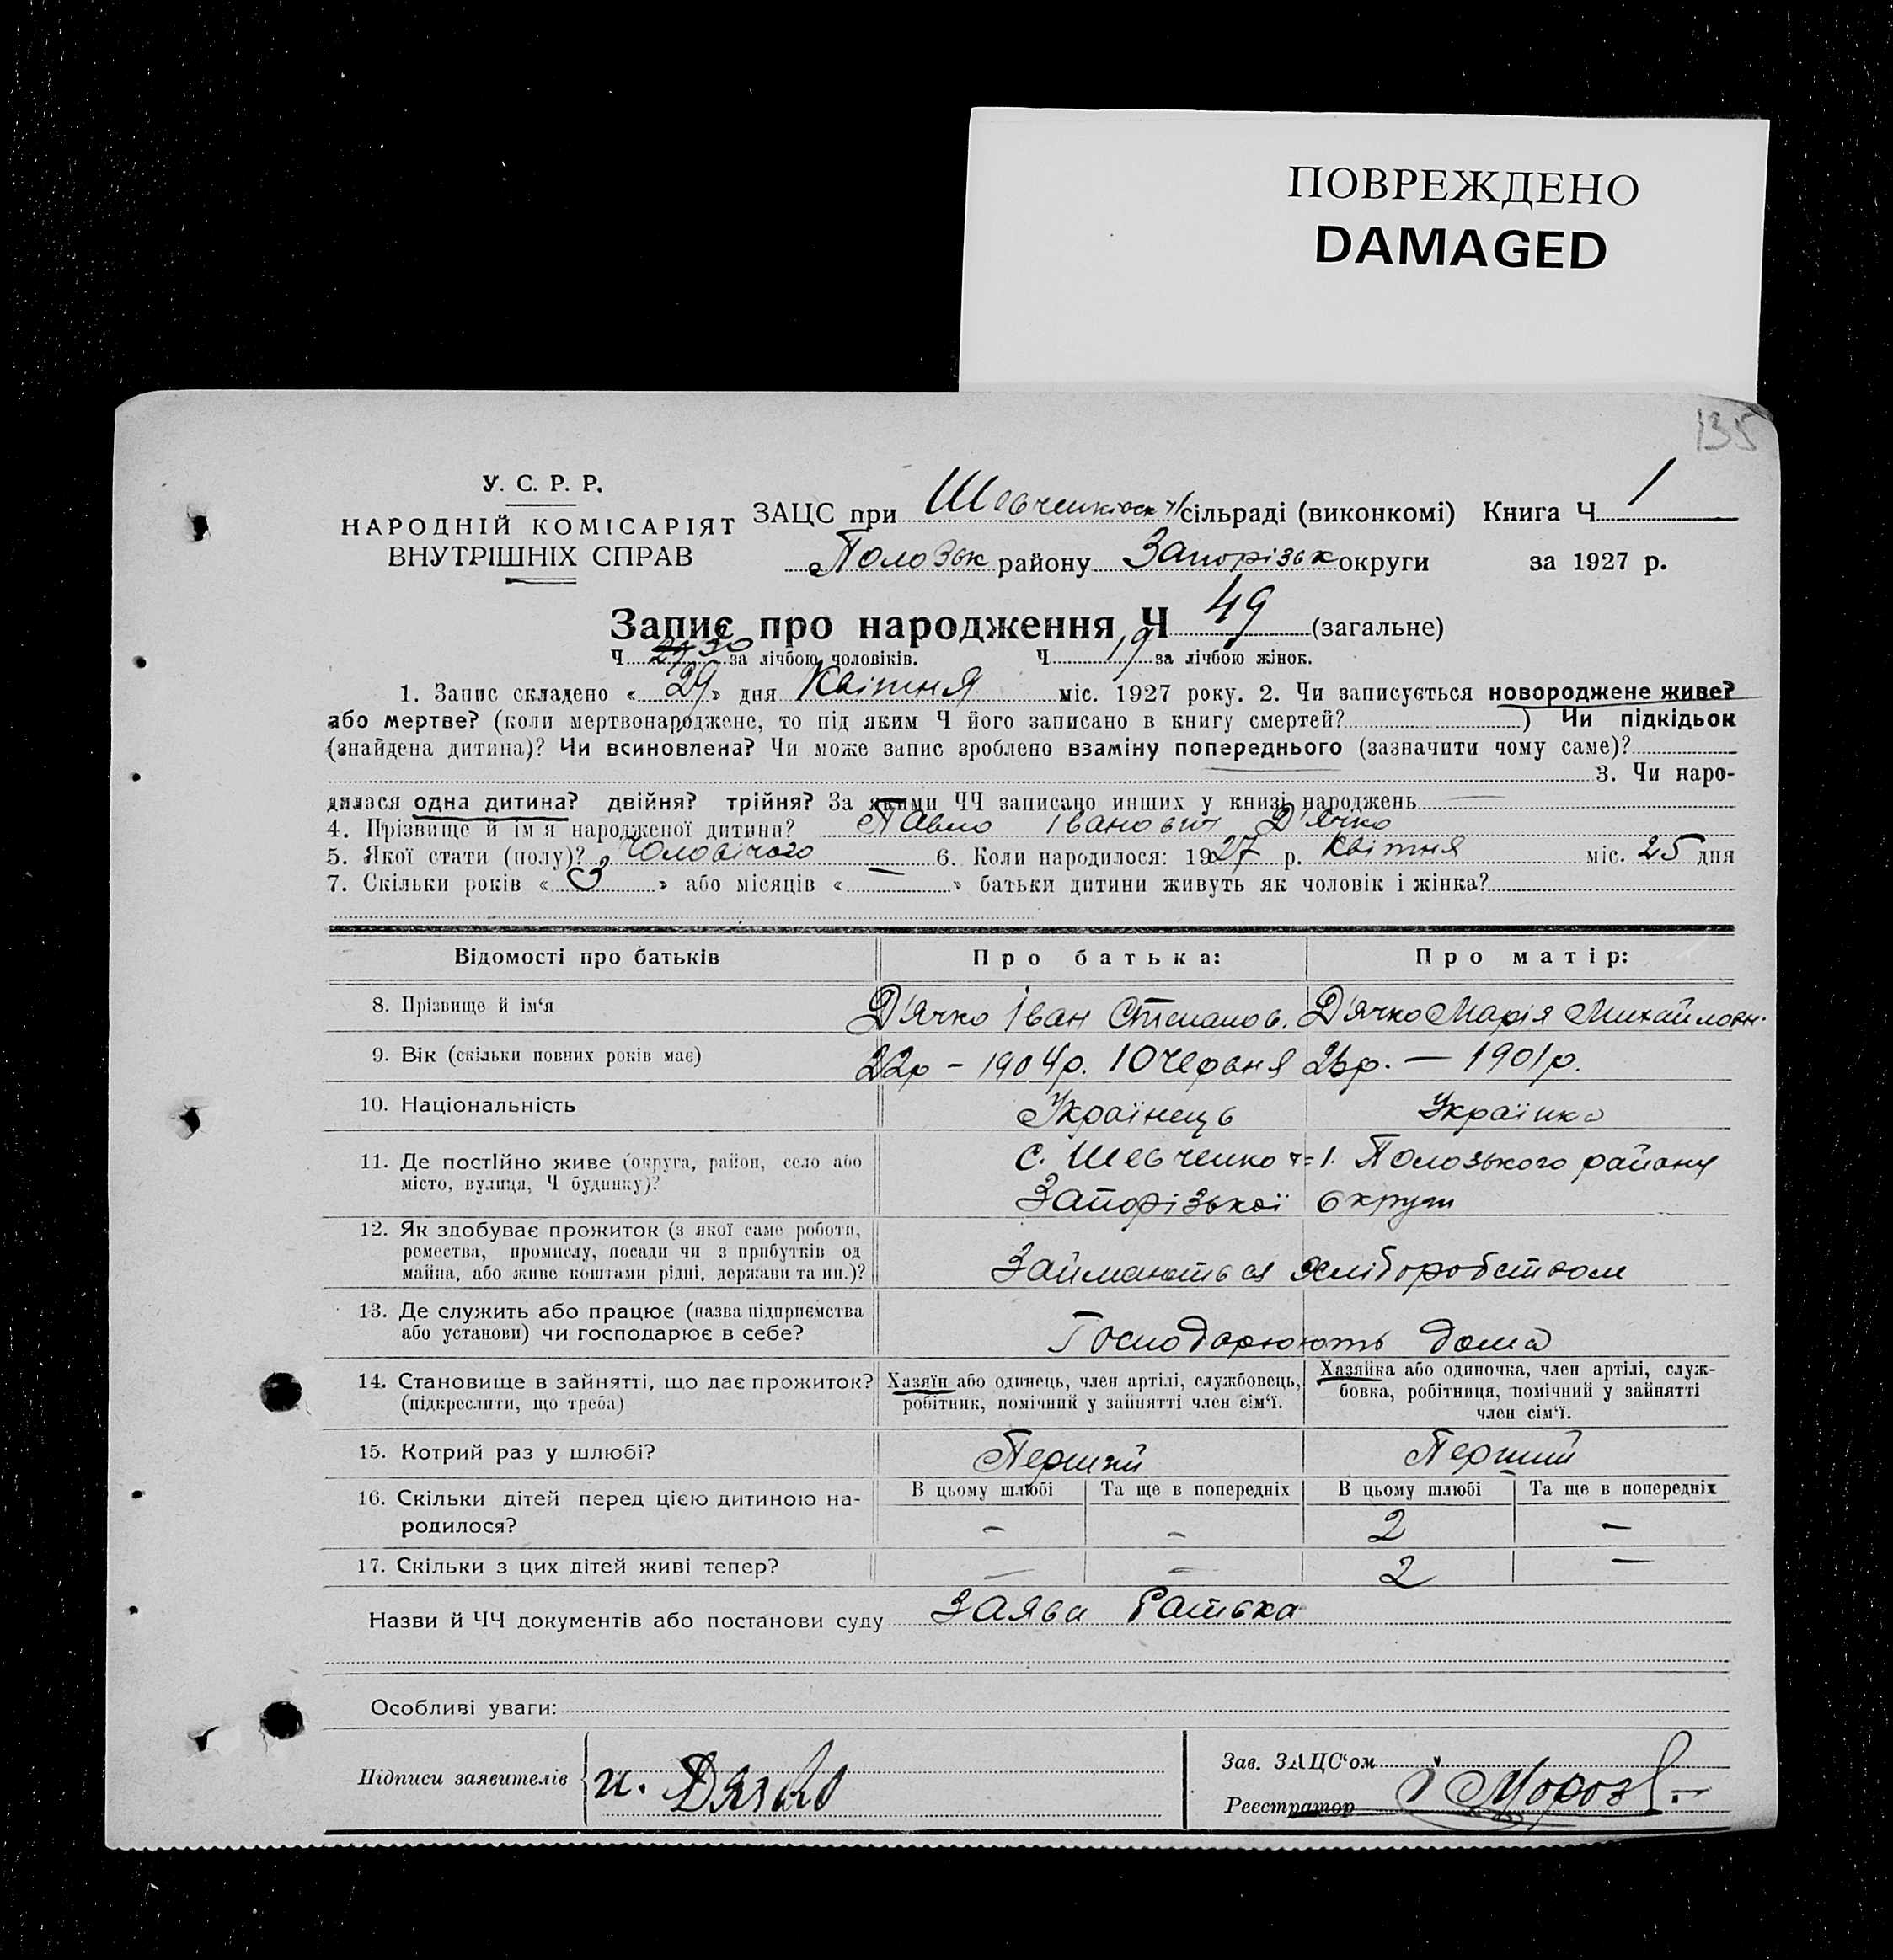 ПОВРЕЖДЕНО
DAMAGED
135
У. С. Р. Р.
НАРОДНІЙ КОМІСАРІЯТ
ВНУТРІШНІХ СПРАВ
ЗАЦС при Шевченківськ сільраді (виконкомі) Книга Ч 1
Полозьк району Запорізьк округи за 1927 р.
Запис про народження Ч 49 (загальне)
Ч 30 за лічбою чоловіків. Ч 19 за лічбою жінок.
1. Запис складено « 29 » дня Квітня міс. 1927 року. 2. Чи записується новороджене живе?
або мертве? (коли мертвонароджене, то під яким Ч його записано в книгу смертей? ) Чи підкідьок
(знайдена дитина)? Чи всиновлена? Чи може запис зроблено взаміну попереднього (зазначити чому саме)?
3. Чи наро-
дилася одна дитина? двійня? трійня? За якими ЧЧ записано инших у книзі народжень —
4. Прізвище й ім'я народженої дитини? Павло Іванович Д'ячко
5. Якої стати (полу)? Чоловічого 6. Коли народилося: 1927 р. Квітня міс. 25 дня
7. Скільки років « 3 » або місяців « — » батьки дитини живуть як чоловік і жінка?
Відомості про батьків Про батька: Про матір:
8. Прізвище й ім‘я Д'ячко Іван Степанов. Д'ячко Марія Михайловн.
9. Вік (скільки повних років має) 22р – 1904р. 10 червня – 1901р.
10. Національність Українець Українка
11. Де постійно живе (округа, район, село або
місто, вулиця, Ч будинку)?
с. Шевченко ч=1. Полозького району
Запорізької округи
12. Як здобуває прожиток (з якої саме роботи,
ремества, промислу, посади чи з прибутків од
майна, або живе коштами рідні, держави та ин.)?
Займаються хліборобством
13. Де служить або працює (назва підприємства
або установи) чи господарює в себе?
Господарюють дома
14. Становище в зайнятті, що дає прожиток?
(підкреслити, що треба)
Хазяїн або одинець, член артілі, службовець,
робітник, помічний у зайнятті член сім‘ї.
Хазяйка або одиночка, член артілі, служ-
бовка, робітниця, помічний у зайнятті
член сім‘ї.
15. Котрий раз у шлюбі? Перший Перший
В цьому шлюбі Та ще в попередніх В цьому шлюбі Та ще в попередніх
16. Скільки дітей перед цією дитиною на-
родилося?
– – 2 –
17. Скільки з цих дітей живі тепер? – – 2 –
Назви й ЧЧ документів або постанови суду Заява Батька
Особливі уваги:
Підписи заявителів и. Дячко
Зав. ЗАЦС‘ом
Реєстратор Мороз